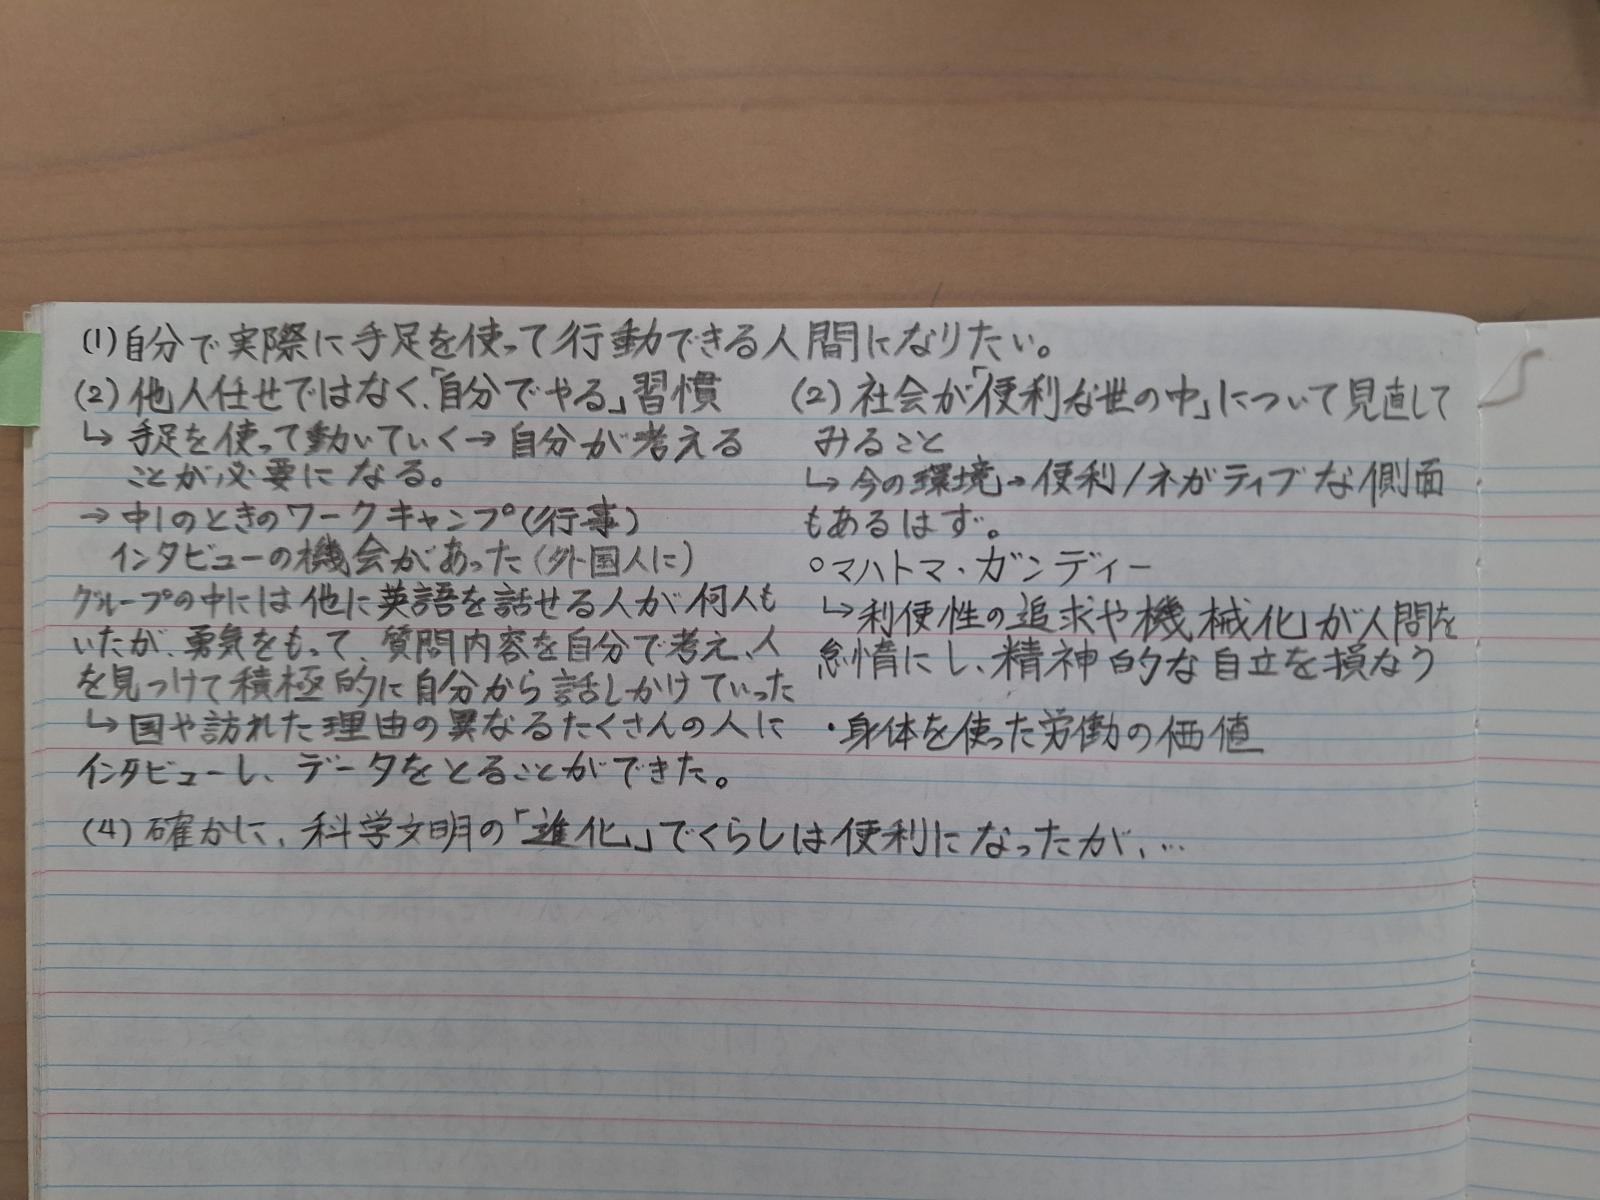 (1)自分で実際に手足を使って行動できる人間になりたい。
(2)他人任せではなく、「自分でやる」習慣
↳手足を使って動いていく→自分が考える
ことが必要になる。
→中1のときのワークキャンプ(行事)
インタビューの機会があった(外国人に)
グループの中には他に英語を話せる人が何人も
いたが、勇気をもって、質問内容を自分で考え、人
を見つけて積極的に自分から話しかけていった
↳国や訪れた理由の異なるたくさんの人に
インタビューし、データをとることができた。
(2)社会が「便利な世の中」について見直して
みること
↳今の環境→便利/ネガティブな側面
もあるはず。
○マハトマ・ガンディー
↳利便性の追求や機械化」が人間を
怠惰にし、精神的な自立を損なう
・身体を使った労働の価値
(4)確かに、科学文明の「進化」でくらしは便利になったが、…